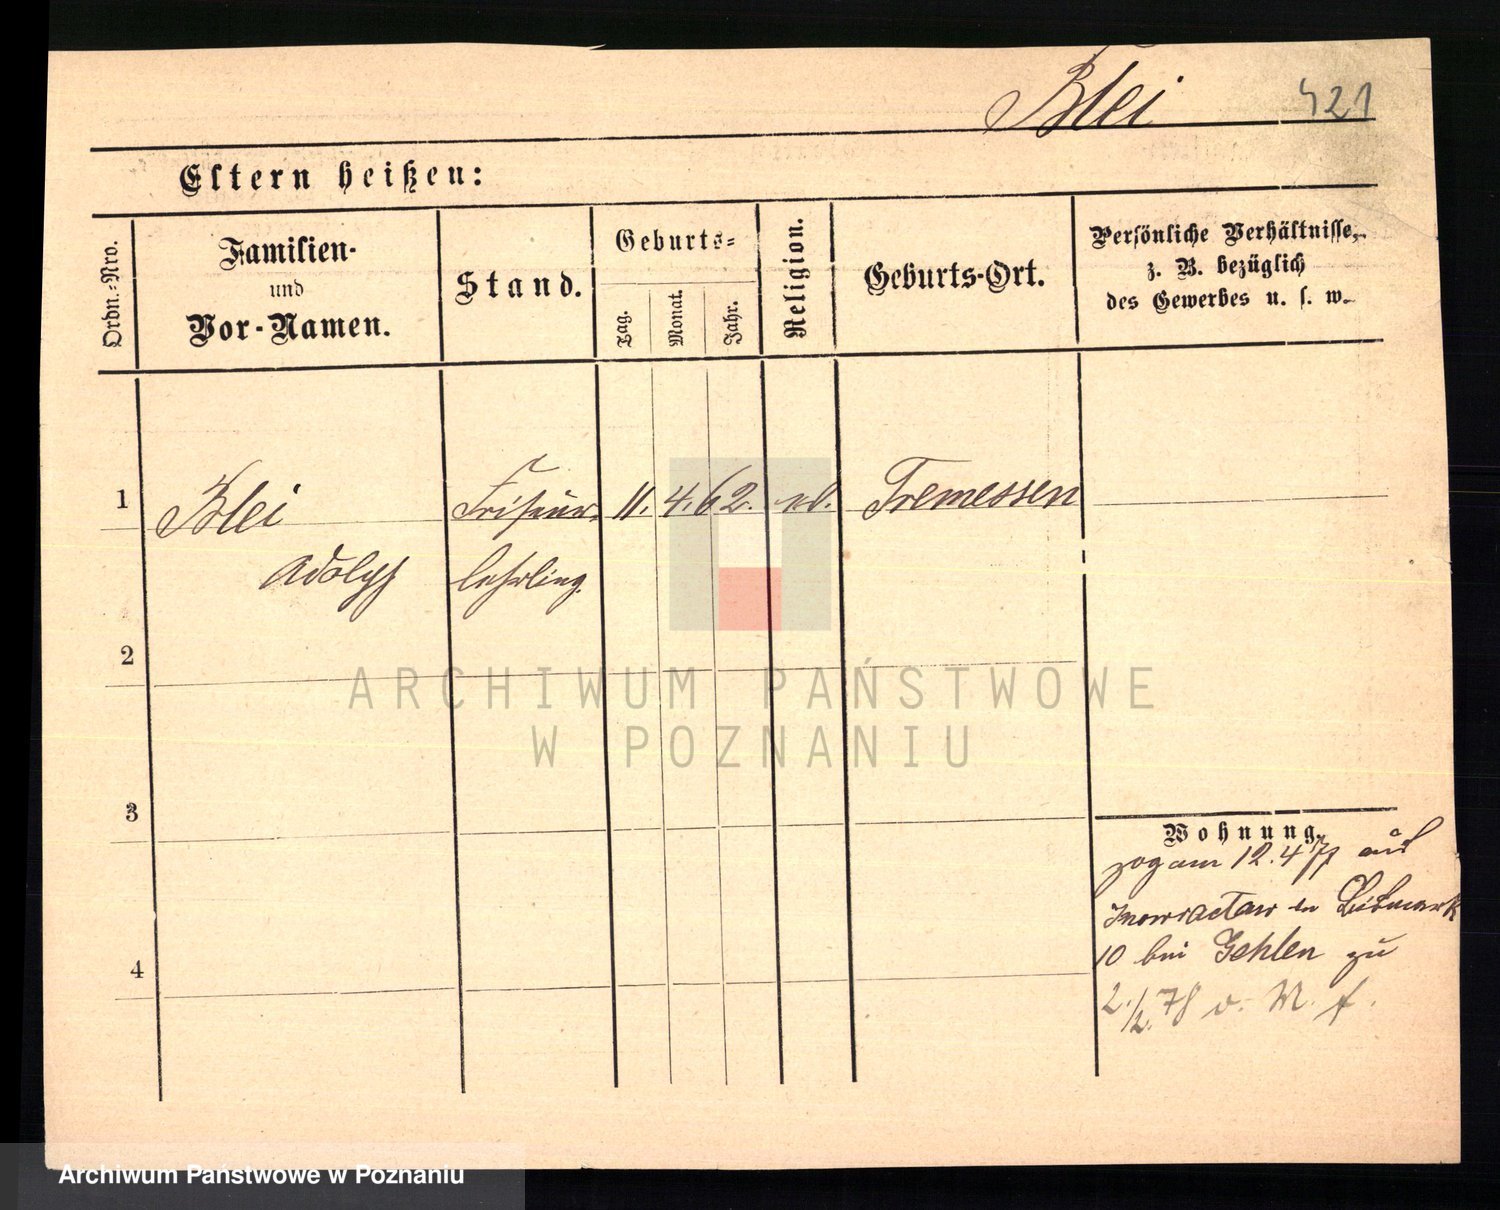 Blei 421
Eltern heißen:
Ordn.-Nro.
Familien-
und
Vor-Namen.
Stand.
Geburts-
Tag.
Monat.
Jahr.
Religion.
Geburts-Ort.
Persönliche Verhältnisse,
z. B. bezüglich
des Gewerbes u. s. w.
1 Blei Friseur- 11. 4. 62. Tremessen
Adolph lehrling.
2
3
4
Wohnung.
zog am 12.4 77 aus
Inowraclaw in Bismark
10 bei Gehlen zu
2./2. 78 v. M. f.
ARCHIWUM PAŃSTWOWE
W POZNANIU
Archiwum Państwowe w Poznaniu